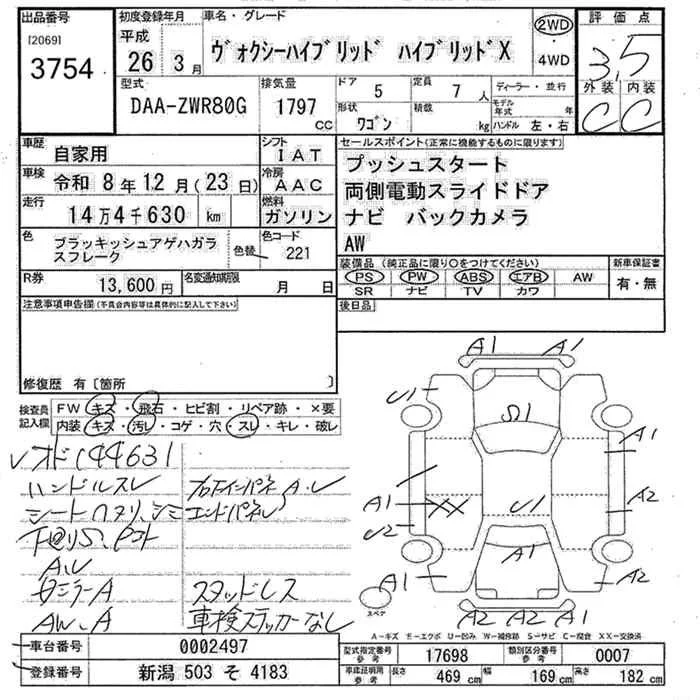 出品番号
[2069]
3754
初度登録年月
平成
26年 3月
車名・グレード
ヴォクシーハイブリッド ハイブリッドX
2WD
・
4WD
評価点
3.5
外装 内装
C C
型式
DAA-ZWR80G
排気量
1797
CC
ドア
5
定員
7人
形状
ワゴン
積載
kg
ディーラー・並行
モデル年式 年
ハンドル 左・右
車歴
自家用
シフト
IAT
車検
令和 8年12月(23日)
冷房
AAC
走行
14万4千630 km
燃料
ガソリン
色
ブラッキッシュアゲハガラ
スフレーク
色替
色コード
221
R券
13,600円
名変通知期限
月 日
セールスポイント(正常に機能するものに限ります)
プッシュスタート
両側電動スライドドア
ナビ バックカメラ
AW
装備品(純正品に限り○をつけてください)
新車保証書
PS PW ABS エアB AW
有・無
SR ナビ TV カワ
後日品
注意事項申告欄(不具合内容等は具体的に記入して下さい)
修復歴 有〔箇所 〕
検査員
記入欄
FW キズ・飛石・ヒビ割・リペア跡・×要
内装 キズ・汚レ・コゲ・穴・スレ・キレ・破レ
オド144631
ハンドルスレ
A・ル
エンドパネル
A.ル
スタッドレス
AW.A
車検ステッカーなし
A1 A1
U1
S1
A1
A1 XX
A2
U2
U1
A1
A1
A2
A2 A2 A1
スペア
A-キズ E-エクボ U-凹み W-補修跡 S-サビ C-腐食 XX-交換済
車台番号
0002497
登録番号
新潟 503 そ 4183
型式指定番号
参考
17698
類別区分番号
参考
0007
車庫証明用
参考
長さ
469 cm
幅
169 cm
高さ
182 cm